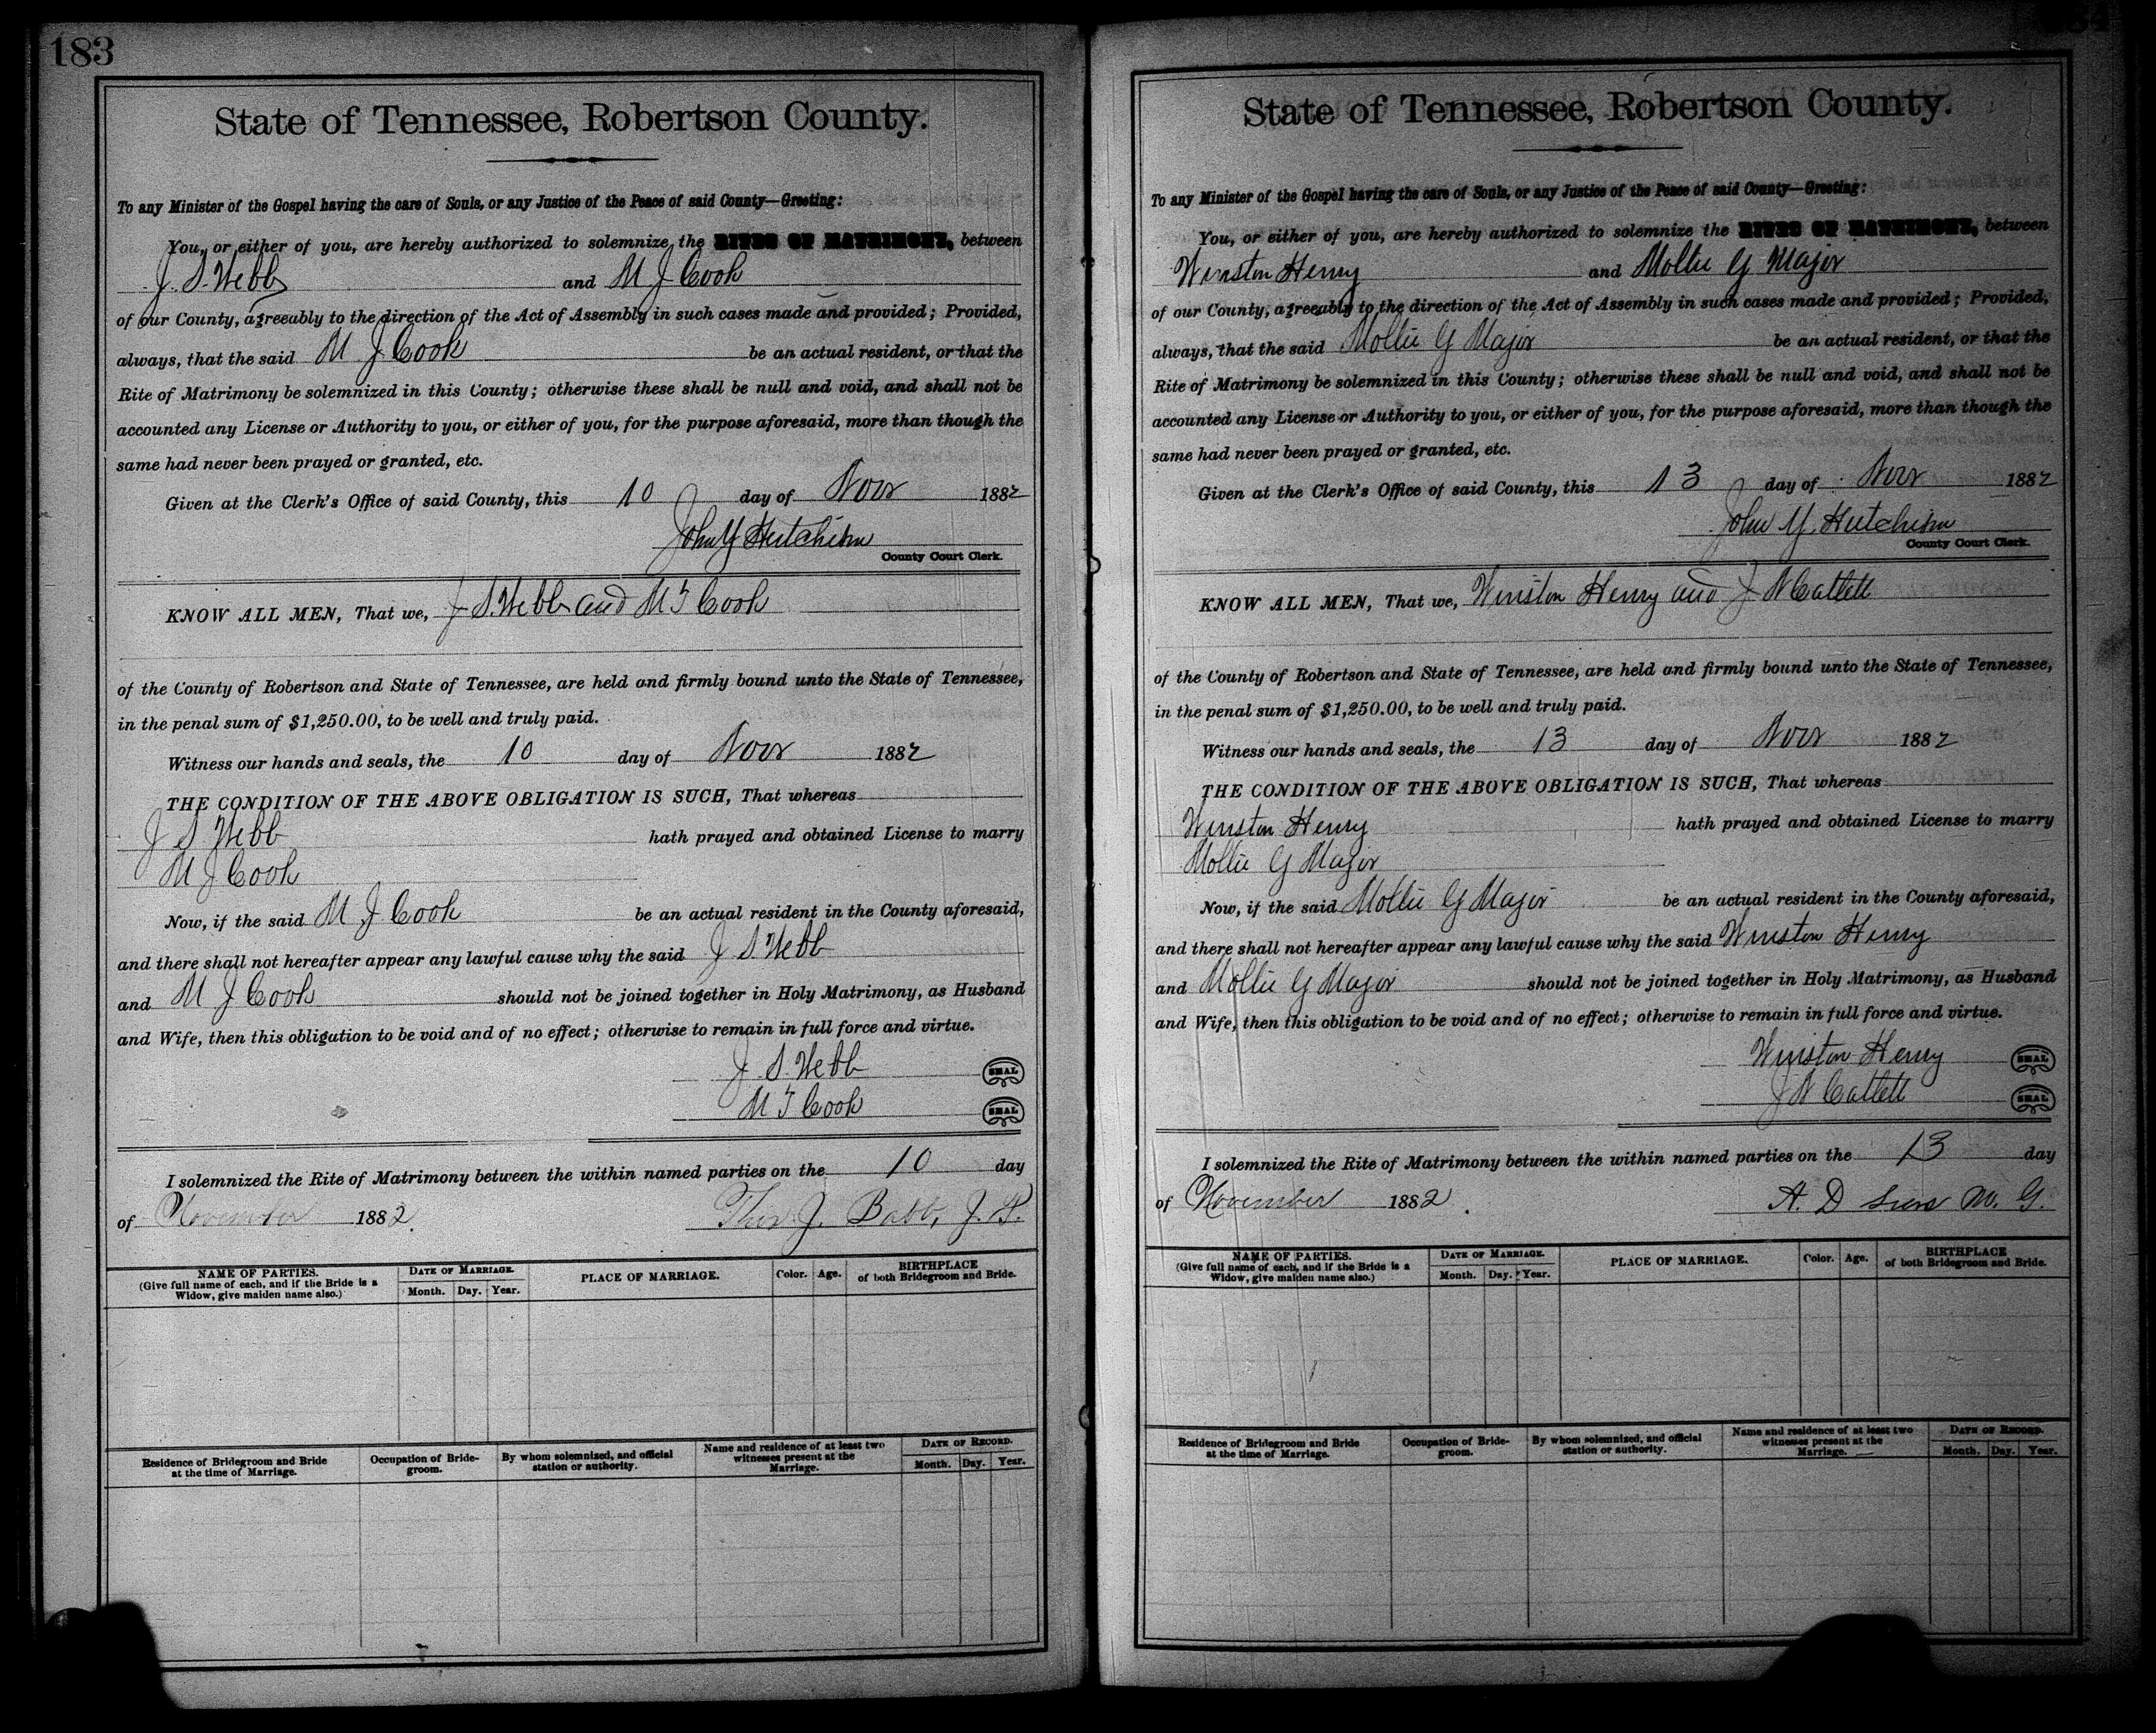 183
State of Tennessee, Robertson County.
To any Minister of the Gospel having the care of Souls, or any Justice of the Peace of said County—Greeting:
You, or either of you, are hereby authorized to solemnize the RITES OF MATRIMONY, between
J. S. Webb and M J Cook
of our County, agreeably to the direction of the Act of Assembly in such cases made and provided; Provided,
always, that the said M J Cook be an actual resident, or that the
Rite of Matrimony be solemnized in this County; otherwise these shall be null and void, and shall not be
accounted any License or Authority to you, or either of you, for the purpose aforesaid, more than though the
same had never been prayed or granted, etc.
Given at the Clerk's Office of said County, this 10 day of Novr 1882
John Y Hutchison
County Court Clerk.
KNOW ALL MEN, That we, J S. Webb and M T Cook
of the County of Robertson and State of Tennessee, are held and firmly bound unto the State of Tennessee,
in the penal sum of $1,250.00, to be well and truly paid.
Witness our hands and seals, the 10 day of Novr 1882
THE CONDITION OF THE ABOVE OBLIGATION IS SUCH, That whereas
J S Webb hath prayed and obtained License to marry
M J Cook
Now, if the said M J Cook be an actual resident in the County aforesaid,
and there shall not hereafter appear any lawful cause why the said J S. Webb
and M J Cook should not be joined together in Holy Matrimony, as Husband
and Wife, then this obligation to be void and of no effect; otherwise to remain in full force and virtue.
J S. Webb SEAL
M T Cook SEAL
I solemnized the Rite of Matrimony between the within named parties on the 10 day
of November 1882. Thos J. Babb, J. P.
NAME OF PARTIES. (Give full name of each, and if the Bride is a Widow, give maiden name also.) DATE OF MARRIAGE. Month. Day. Year. PLACE OF MARRIAGE. Color. Age. BIRTHPLACE of both Bridegroom and Bride.
Residence of Bridegroom and Bride at the time of Marriage. Occupation of Bride-groom. By whom solemnized, and official station or authority. Name and residence of at least two witnesses present at the Marriage. DATE OF RECORD. Month. Day. Year.
State of Tennessee, Robertson County.
To any Minister of the Gospel having the care of Souls, or any Justice of the Peace of said County—Greeting:
You, or either of you, are hereby authorized to solemnize the RITES OF MATRIMONY, between
Winston Henry and Mollie G Major
of our County, agreeably to the direction of the Act of Assembly in such cases made and provided; Provided,
always, that the said Mollie G Major be an actual resident, or that the
Rite of Matrimony be solemnized in this County; otherwise these shall be null and void, and shall not be
accounted any License or Authority to you, or either of you, for the purpose aforesaid, more than though the
same had never been prayed or granted, etc.
Given at the Clerk's Office of said County, this 13 day of Novr 1882
John Y. Hutchison
County Court Clerk.
KNOW ALL MEN, That we, Winston Henry and J N Catlett
of the County of Robertson and State of Tennessee, are held and firmly bound unto the State of Tennessee,
in the penal sum of $1,250.00, to be well and truly paid.
Witness our hands and seals, the 13 day of Novr 1882
THE CONDITION OF THE ABOVE OBLIGATION IS SUCH, That whereas
Winston Henry hath prayed and obtained License to marry
Mollie G Major
Now, if the said Mollie G Major be an actual resident in the County aforesaid,
and there shall not hereafter appear any lawful cause why the said Winston Henry
and Mollie G Major should not be joined together in Holy Matrimony, as Husband
and Wife, then this obligation to be void and of no effect; otherwise to remain in full force and virtue.
Winston Henry SEAL
J N Catlett SEAL
I solemnized the Rite of Matrimony between the within named parties on the 13 day
of November 1882. A. D M. G.
NAME OF PARTIES. (Give full name of each, and if the Bride is a Widow, give maiden name also.) DATE OF MARRIAGE. Month. Day. Year. PLACE OF MARRIAGE. Color. Age. BIRTHPLACE of both Bridegroom and Bride.
Residence of Bridegroom and Bride at the time of Marriage. Occupation of Bride-groom. By whom solemnized, and official station or authority. Name and residence of at least two witnesses present at the Marriage. DATE OF RECORD. Month. Day. Year.